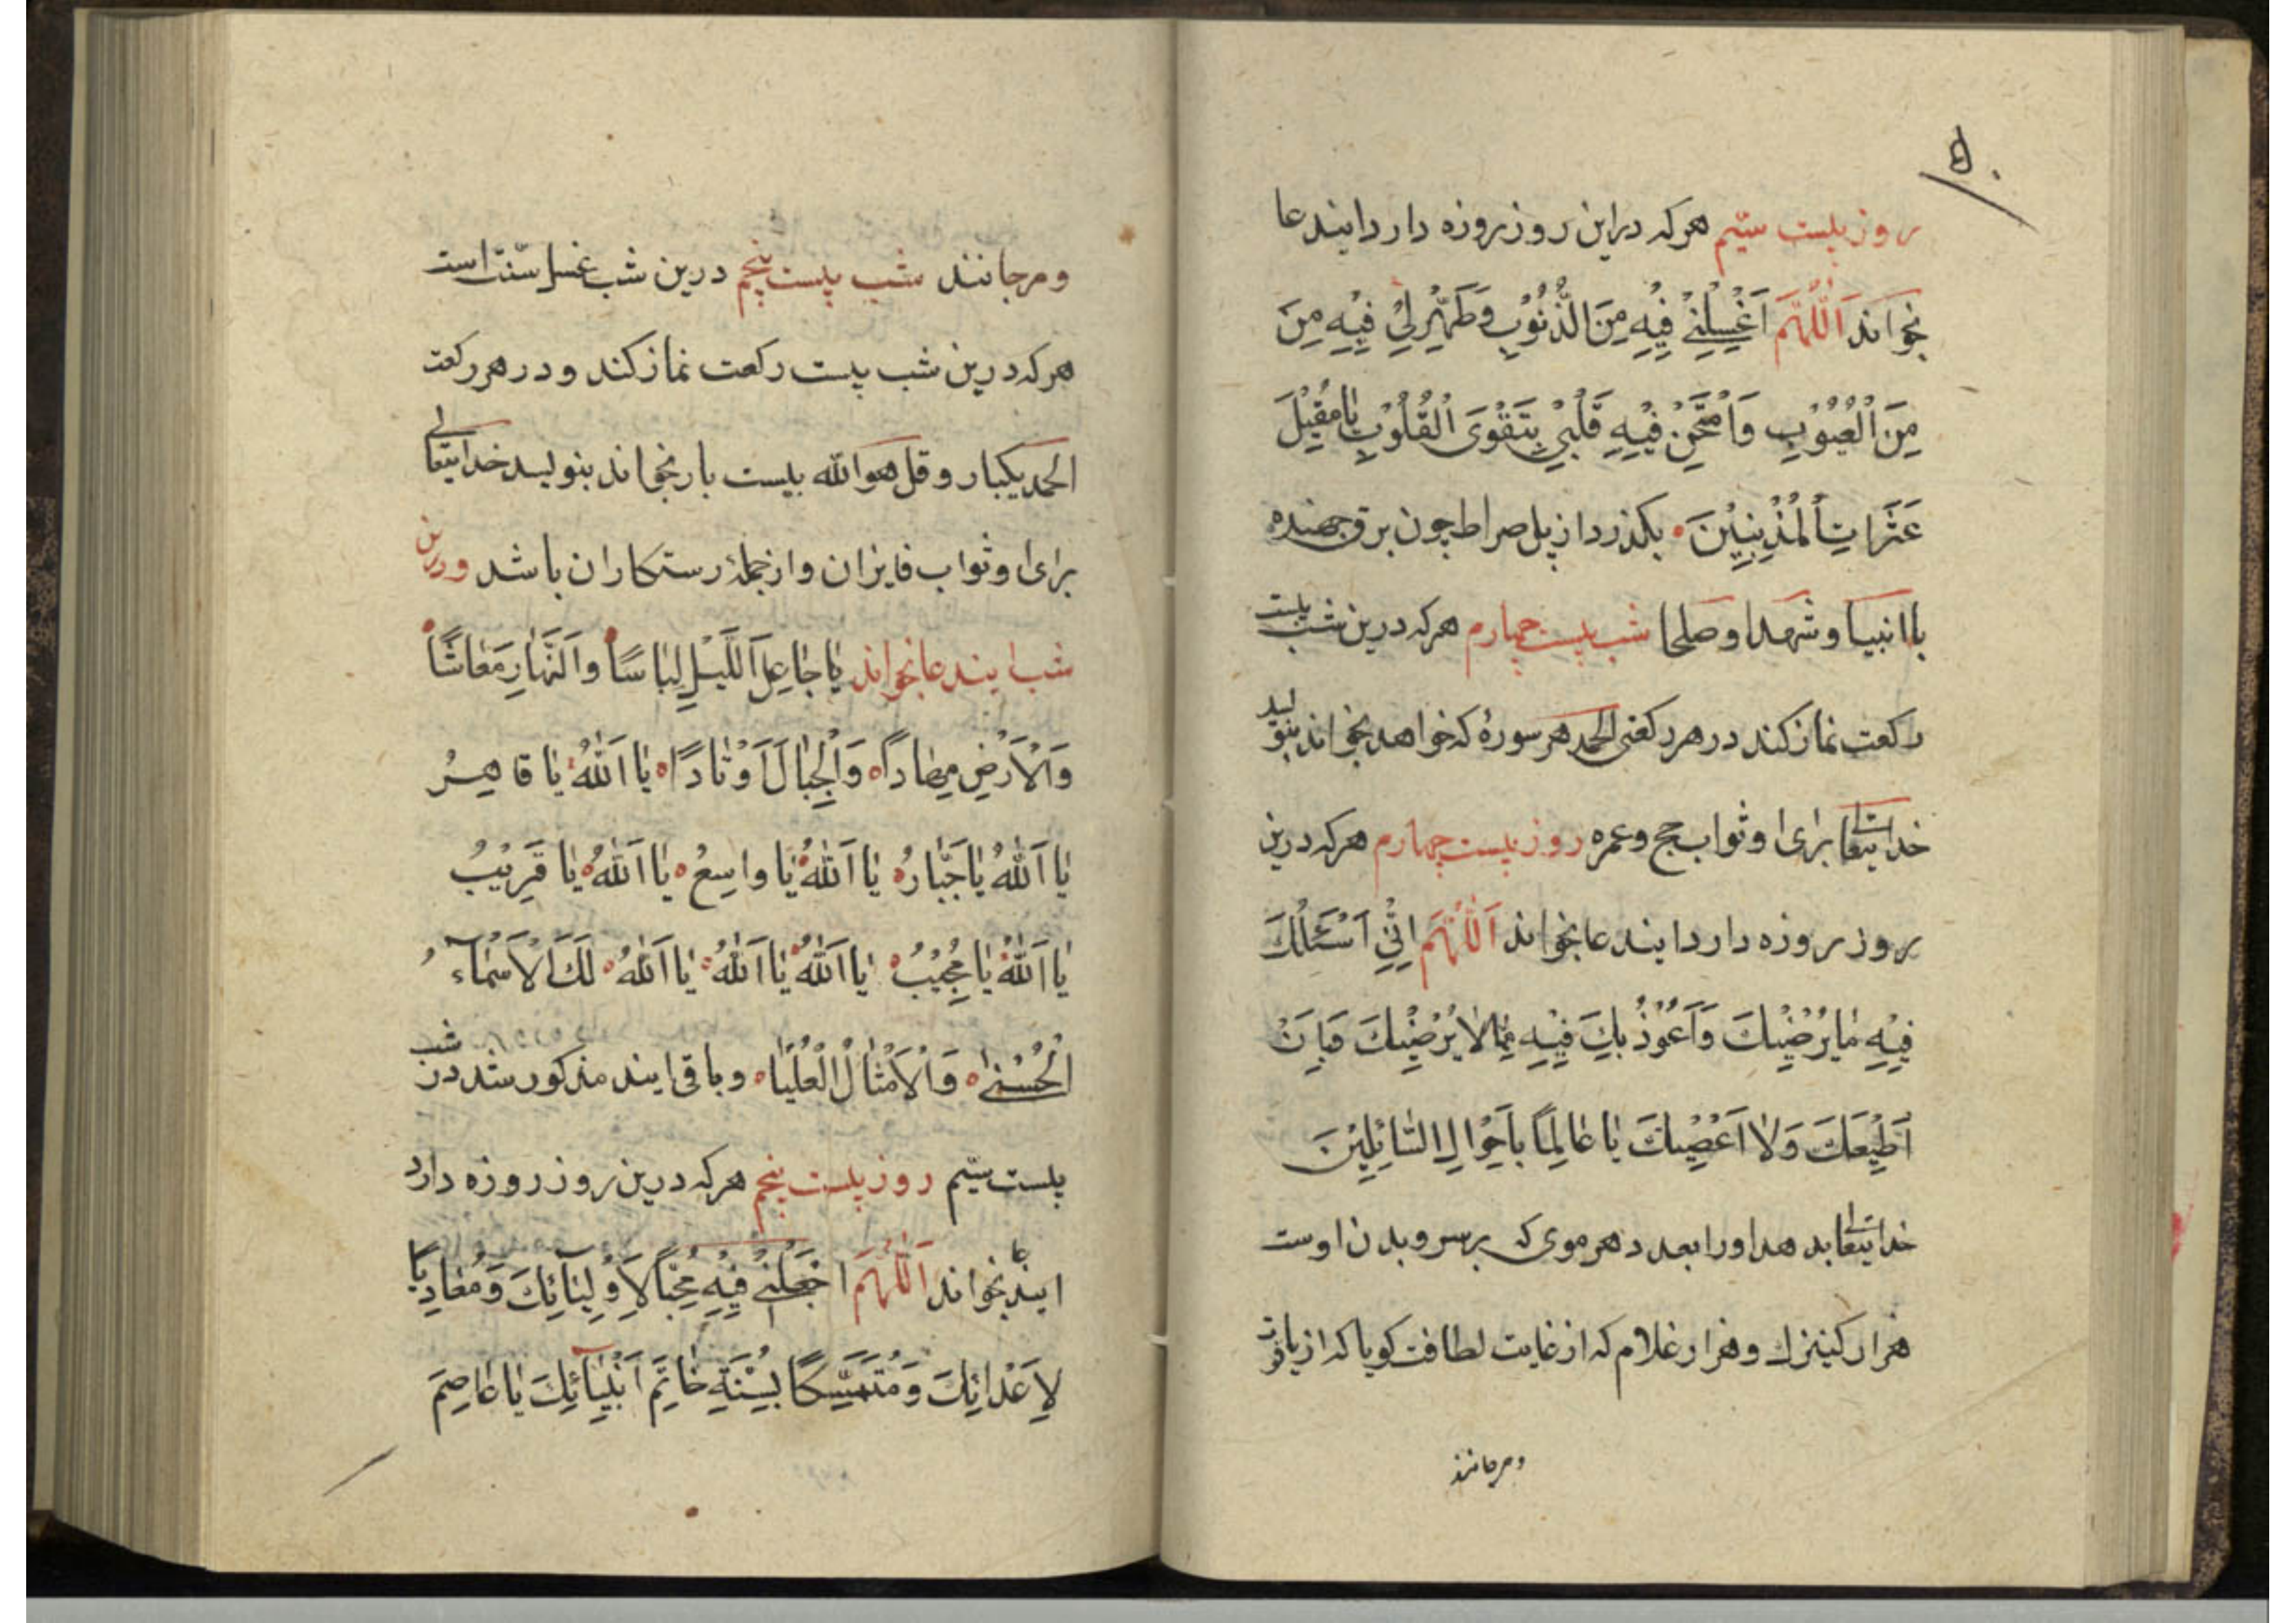 ۵۰
روز بیست سیّم هرکه دراین روز روزه دارد ایندعا
بخواند اَللّٰهُمَّ اَغْسِلْنِيْ فِيْهِ مِنَ الذُّنُوْبِ وَطَهِّرْلِيْ فِيْهِ مِنَ
مِنَ الْعُيُوْبِ وَاَمْتَحِنْ فِيْهِ قَلْبِيْ بِتَقْوَى الْقُلُوْبِ يٰا مُقِيْلَ
عَثَرَاتِ الْمُذْنِبِيْنَ بکذرد از پل صراط چون برق جهنده
باانبیا و شهدا و صلحا شب بیست چهارم هرکه درین شب بیست
رکعت نماز کند در هر رکعتی الحمد هر سورهٔ که خواهد بخواند بنویسد
خدایتعالی برای او ثواب حج و عمره روز بیست چهارم هرکه درین
روز روزه دارد ایندعا بخواند اَللّٰهُمَّ اِنِّيْ اَسْئَلُكَ
فِيْهِ مٰا يُرْضِيْكَ وَاَعُوْذُ بِكَ فِيْهِ مِمّٰا لٰا يُرْضِيْكَ وَبِاَنْ
اَطِيْعَكَ وَلٰا اَعْصِيْكَ يٰا عٰالِمًا بِاَحْوٰالِ السّٰائِلِيْنَ
خدایتعالی بدهد اورا بعدد هر موی که بر سر و بدن اوست
هزار کنیزك و هزار غلام که از غایت لطافت کویا که از یاقوت
ومرجانند
ومرجانند شب بیست پنجم درین شب غسل سنّت است
هرکه درین شب بیست رکعت نماز کند و در هر رکعت
الحمد یکبار و قل هوالله بیست بار بخواند بنویسد خدایتعالی
برای او ثواب فایزان و از جملهٔ رستکاران باشد و درین
شب ایندعا بخواند يٰا جٰاعِلَ اَللَّيْلِ لِبٰاسًا وَالنَّهٰارِ مَعٰاشًا
وَالْاَرْضِ مِهٰادًا وَالْجِبٰالَ اَوْتٰادًا يٰا اَللّٰهُ يٰا قاهِرُ
يٰا اَللّٰهُ يٰا جَبّٰارُ يٰا اَللّٰهُ يٰا واسِعُ يٰا اَللّٰهُ يٰا قَرِيْبُ
يٰا اَللّٰهُ يٰا مُجِيْبُ يٰا اَللّٰهُ يٰا اَللّٰهُ يٰا اَللّٰهُ لَكَ الْاَسْمٰآءُ
الْحُسْنىٰ وَالْاَمْثٰالُ الْعُلْيٰا و باقی ایند مذکور شد در شب
بیست سیّم روز بیست پنجم هرکه درین روز روزه دارد
ایندعا بخواند اَللّٰهُمَّ اجْعَلْنِيْ فِيْهِ مُحِبًّا لِاَوْلِيٰآئِكَ وَمُعٰادِيًا
لِاَعْدٰائِكَ وَمُتَمَسِّكًا بِسُنَّةِ خٰاتَمِ اَنْبِيٰآئِكَ يٰا عٰاصِمَ